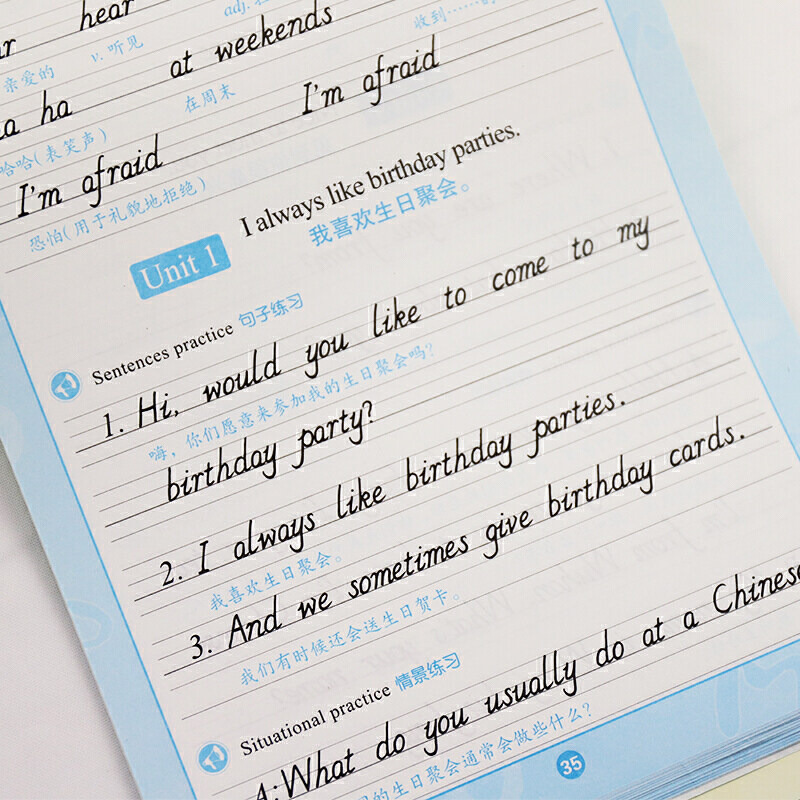 hear
亲爱的 v. 听见 adj.
ha at weekends 收到……的
哈哈(表笑声) 在周末
I'm afraid I'm afraid
恐怕(用于礼貌地拒绝)
Unit 1 I always like birthday parties.
我喜欢生日聚会。
Sentences practice 句子练习
1. Hi, would you like to come to my
嗨，你们愿意来参加我的生日聚会吗?
birthday party?
2. I always like birthday parties.
我喜欢生日聚会。
3. And we sometimes give birthday cards.
我们有时候还会送生日贺卡。
Situational practice 情景练习
A:What do you usually do at a Chinese
的生日聚会通常会做些什么?
35